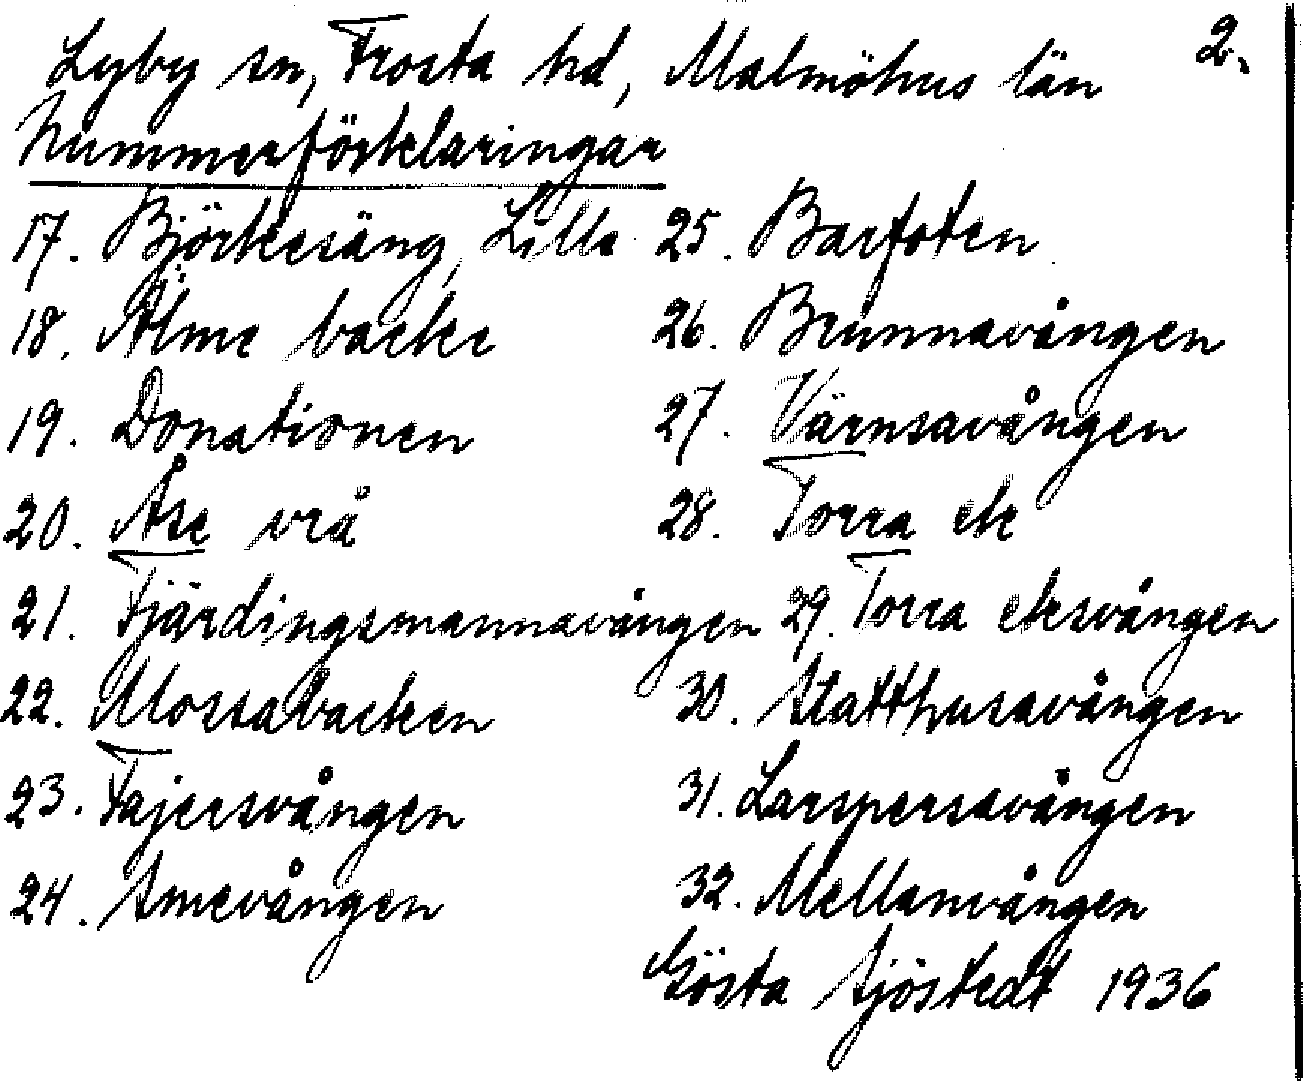 Lyby sn, Frosta hd, Malmöhus län 2.
Nummerförklaringar
17. Björkesäng, Lilla
18. Älme backe
19. Donationen
20. Åse vrå
21. Fjärdingsmannavången
22. Mossabacken
23. Fajersvången
24. Smevången
25. Barfoten
26. Brunnavången
27. Värnsavången
28. Torra ek
29. Torra eksvången
30. Statthusavången
31. Larspersavången
32. Mellanvången
Gösta Sjöstedt 1936